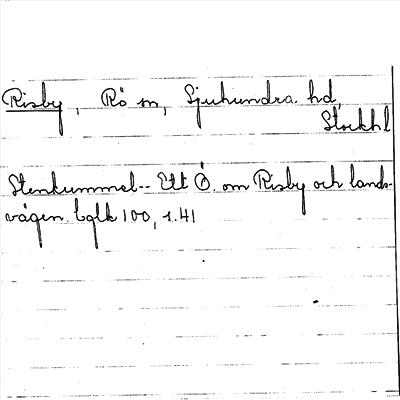 Risby, Rö sn, Sjuhundra hd,
Stockhl
Stenkummel -- Ett Ö. om Risby och lands-
vägen. Eglk 100, s. 41